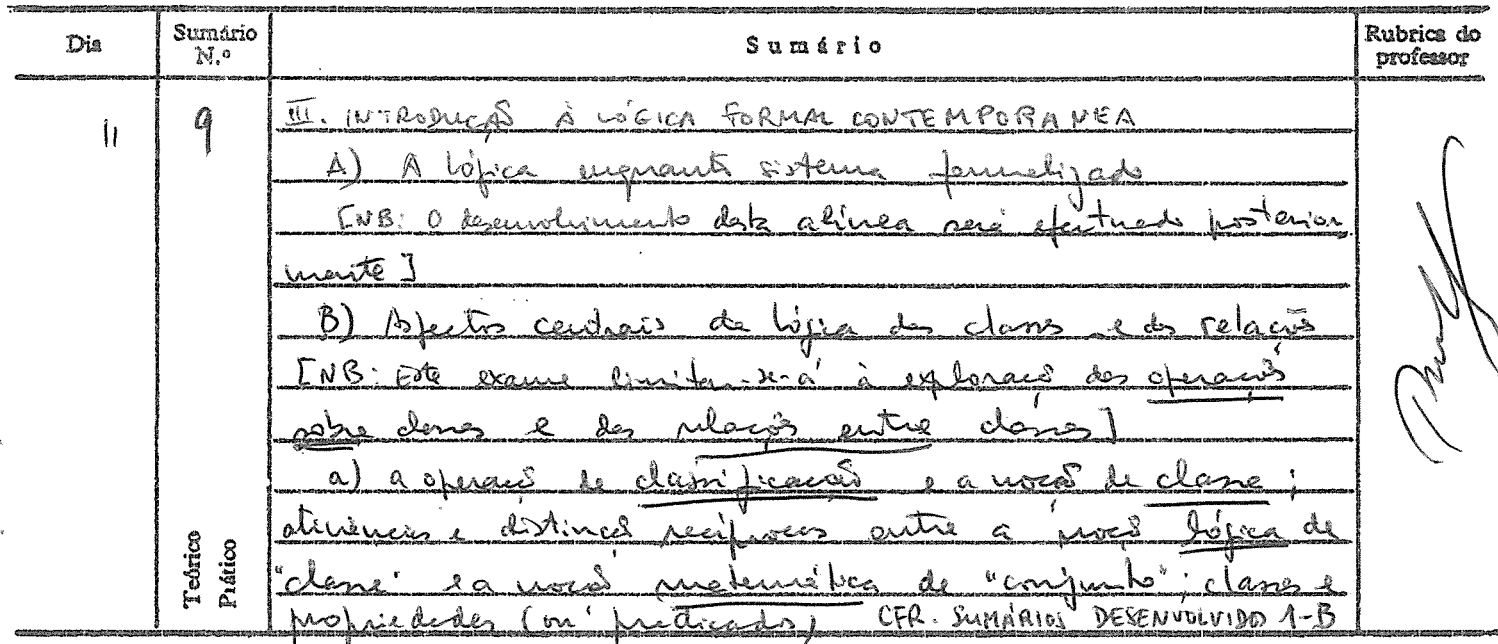 Dia Sumário N.º Sumário Rubrica do professor
11 9 III. INTRODUÇÃO À LÓGICA FORMAL CONTEMPORANEA
A) A lógica enquanto sistema formalizado
[NB: O desenvolvimento desta alínea será efectuado posterior
mente]
B) Aspectos centrais da lógica das classes e das relações
[NB: Este exame limitar-se-á à exploração das operações
sobre classes e das relações entre classes]
a) a operação de classificação e a noção de classe;
atinências e distinção recíprocas entre a noção lógica de
"classe" e a noção matemática de "conjunto"; classes e
propriedades (ou predicados) CFR. SUMÁRIOS DESENVOLVIDO 1-B
Teórico
Prático